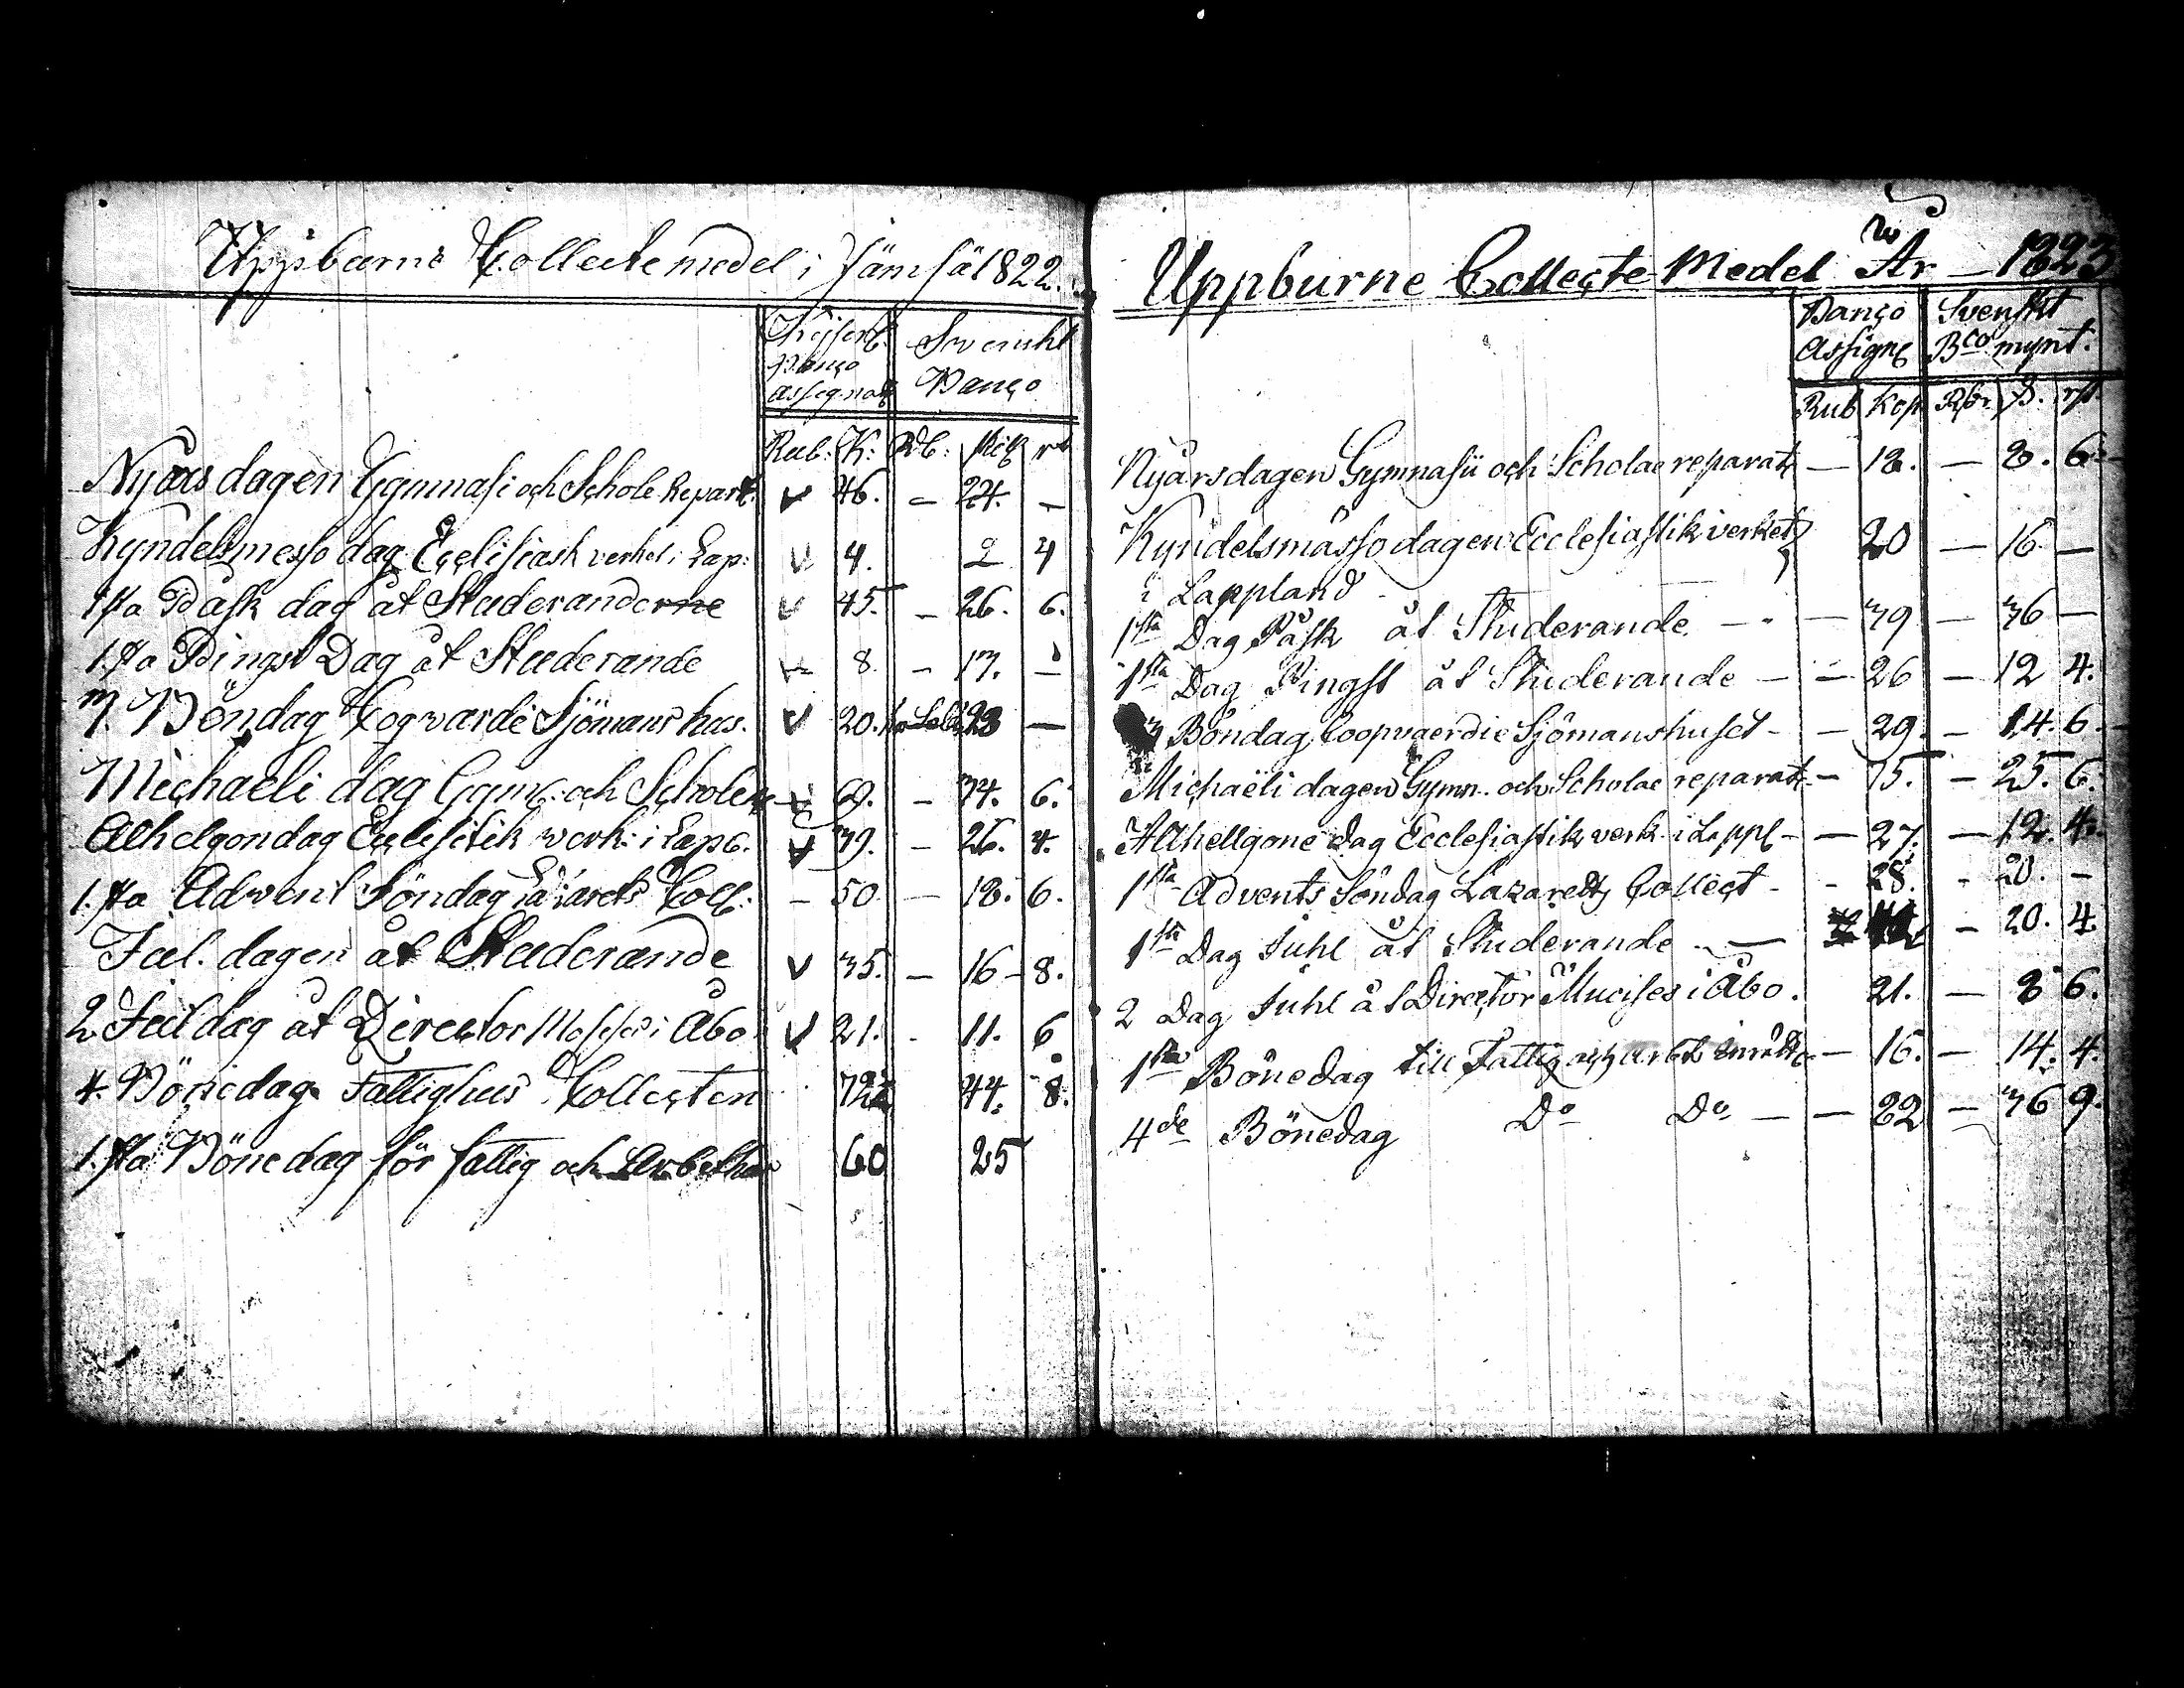 Uppburne Collecte medel i Jämsä 1822.
Keiserl. Swenskt
Banco Banco
assignat
Rub. K: RD: skil rt
Nyårs dagen Gymnasi och Schole Repart. 46. – 24. –
Kyndelsmesso dag Ecclisiask verket i Lap: 4. 2 4
1sta Påsk dag åt Studeranderne 45. – 26. 6.
1.sta Pingst Dag åt Studerande 8 – 17. –
3. Böndag Cogvardi Sjömans hus. 20. 28 –
Michaeli dag Gym: och Scholen 69. – 34. 6.
Alhelgondag Ecclisitik werk: i Lap: 39. – 26. 4.
1.sta Advent Söndag Lazarets Coll: – 50 – 18. 6.
Jul. dagen åt Studerande 35. – 16 – 8.
2 Juldag åt Director i Åbo 21. 11. 6
4. Bönedag Fattighus Collecten 72 44. 8.
1.sta Bönedag för fattig och Arbethus 60 25
Uppburne Collecte Medel År – 1823
Banco Svenskt
Assign Bco mynt.
Rub Kop Rdr. ß. rst
Nyårsdagen Gymnasii och Scholae reparat – 18. – 8. 6.
Kyndelsmässo dagen Ecclesiastik verket 20 – 16 –
i Lappland
1sta Dag Påsk åt Studerande – 39 – 36 –
1sta Dag Pingst åt Studerande – – 26 – 12 4.
3 Böndag Coopvaerdie Sjömanshuset – – 29. – 14. 6.
Michaëli dagen Gymn. och Scholae reparat – 75. – 25. 6.
Allhellgone dag Ecclesiastik verk i Lappl – – 27. – 12. 4.
1sta Advents Söndag Lazarets Collect – – 28. – 20. –
1sta Dag Juhl åt Studerande – – 20. 4.
2 Dag Juhl åt Director Mucises i Åbo. 21. – 8 6.
1sta Bönedag till Fattig och arbets inrättn – 16. – 14. 4.
4de Bönedag Do Do – – 82 – 36 9.